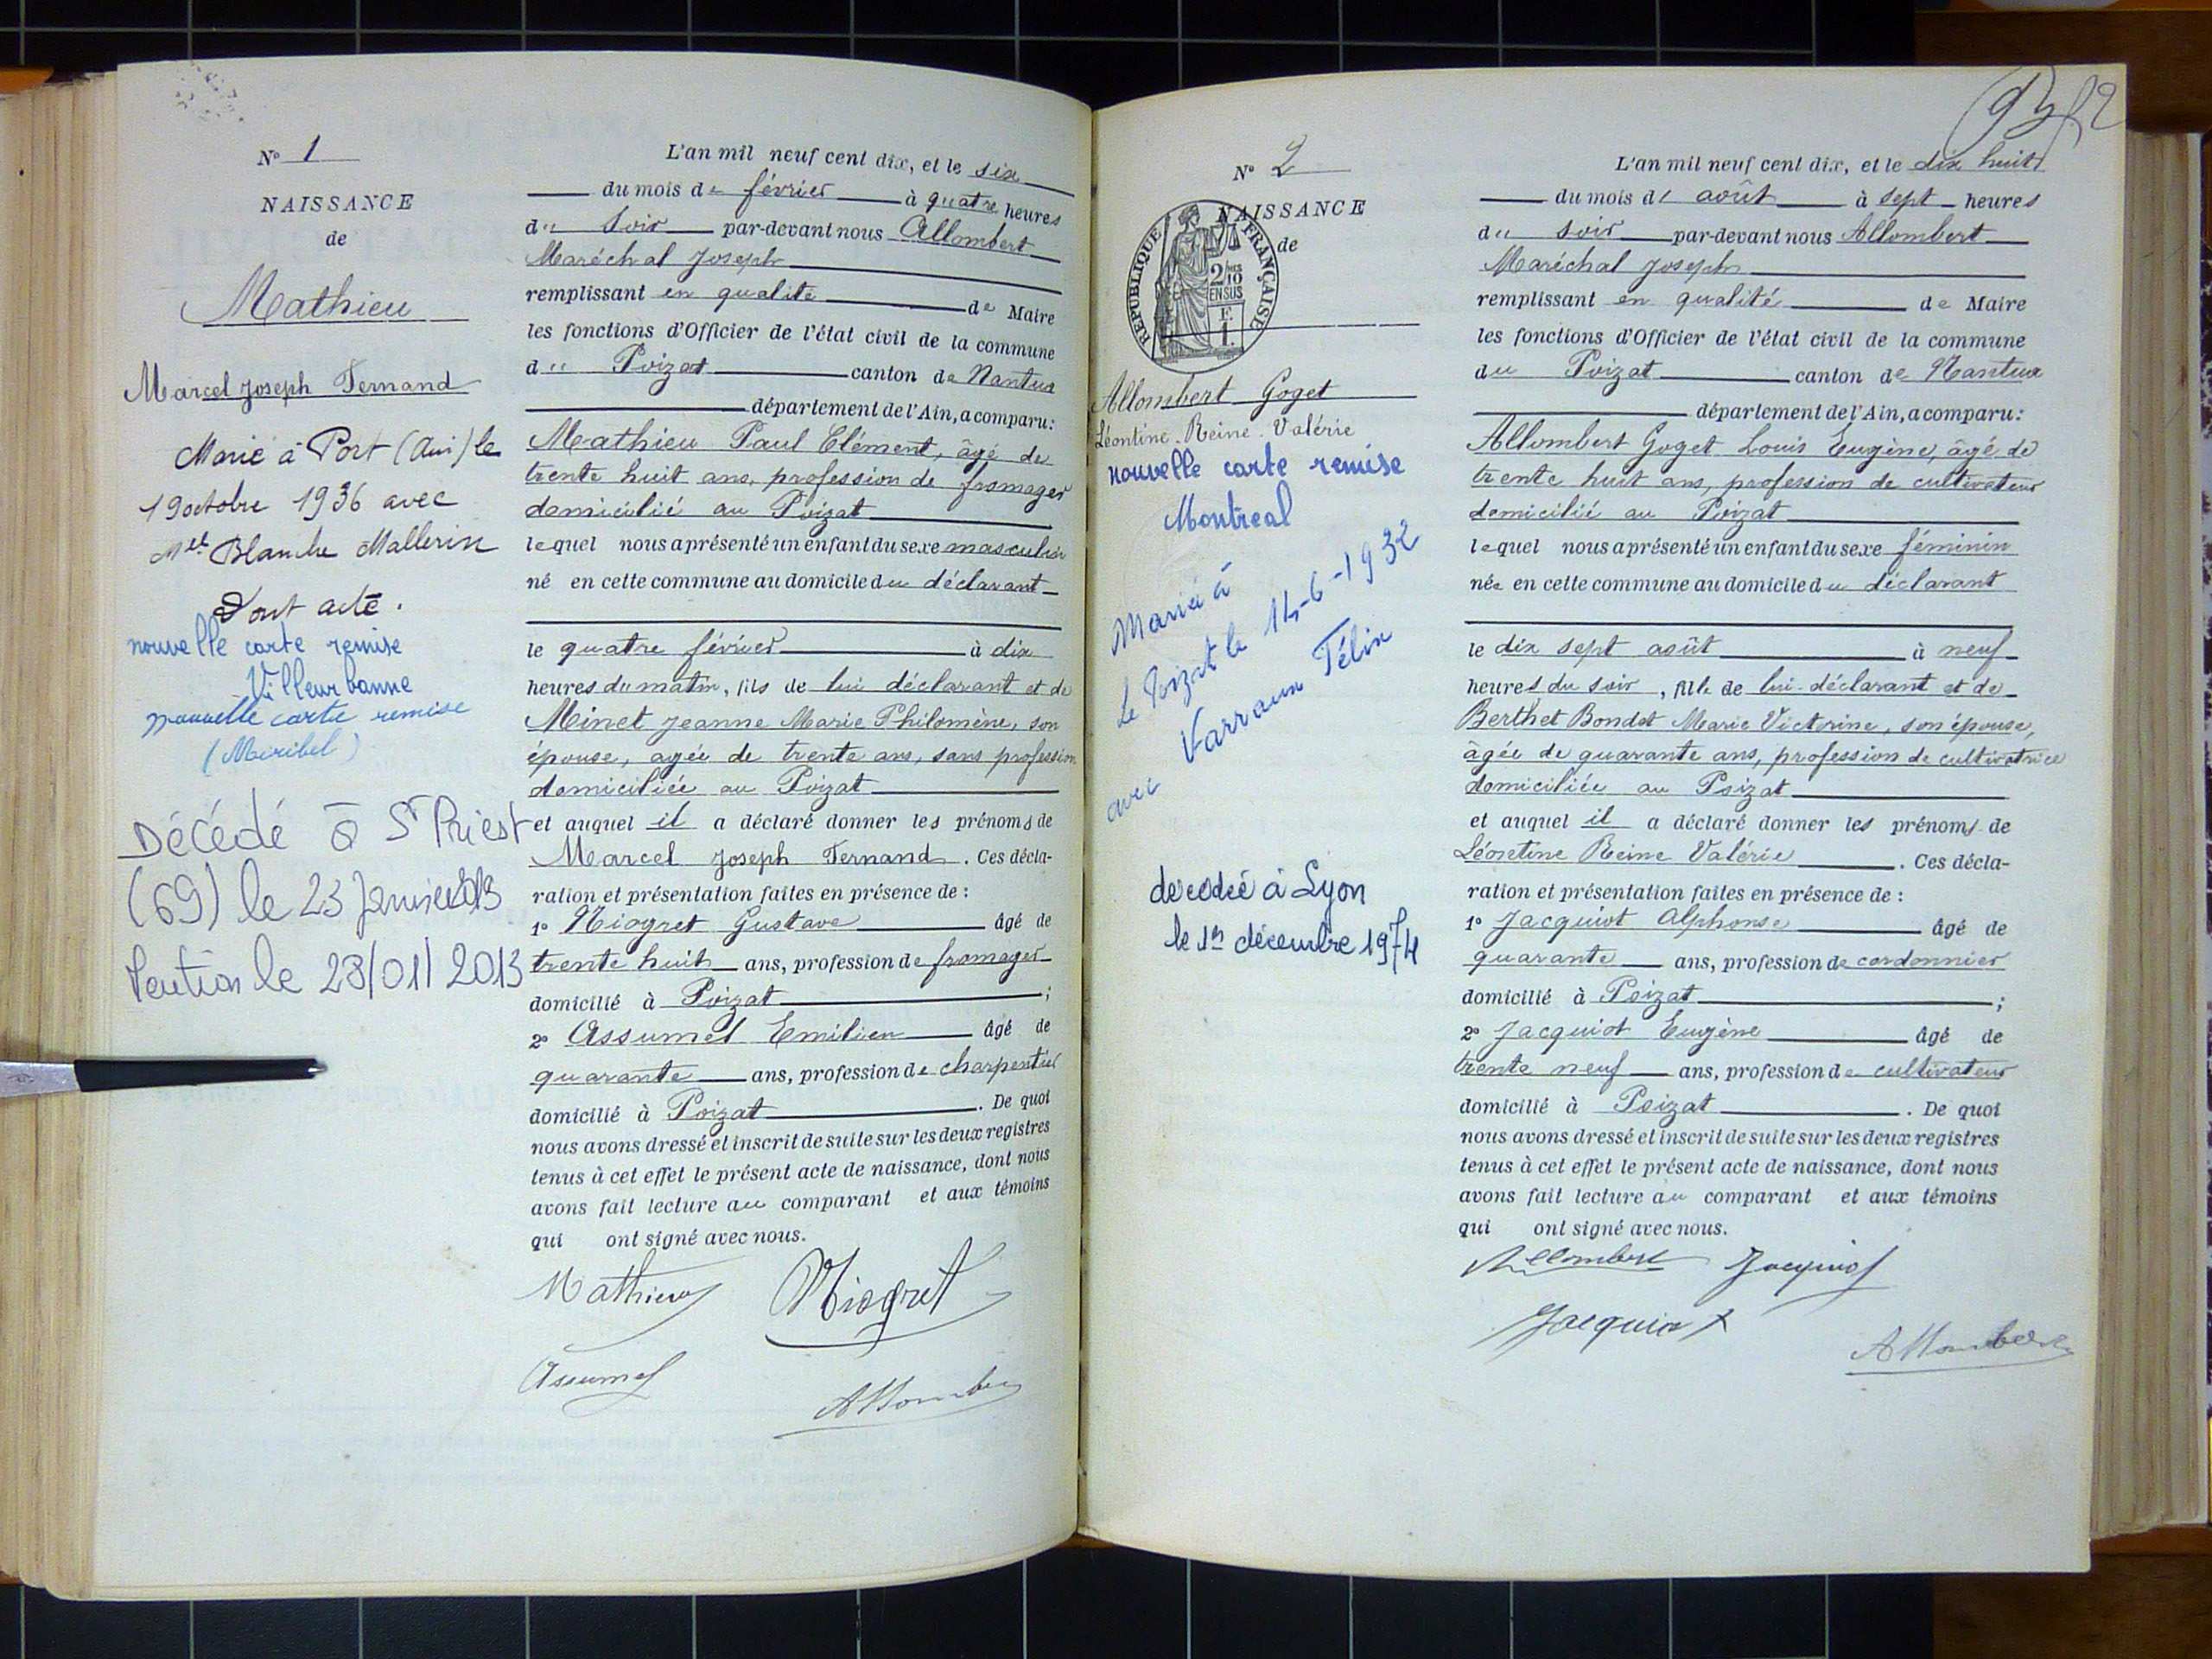 N° 1
NAISSANCE
de
Mathieu
Marcel Joseph Fernand
Marié à Port (Ain) le
19 octobre 1936 avec
Mlle Blanche Mallerin
Dont acte.
nouvelle carte remise
Villeurbanne
nouvelle carte remise
(Miribel)
Décédé à St Priest
(69) le 23 Janvier 2013
Mention le 28/01/2013
L'an mil neuf cent dix, et le six
du mois de février à quatre heures
du soir par-devant nous Allombert
Maréchal Joseph
remplissant en qualité de Maire
les fonctions d'Officier de l'état civil de la commune
du Poizat canton de Nantua
département de l'Ain, a comparu:
Mathieu Paul Clément, âgé de
trente huit ans, profession de fromager
domicilié au Poizat
lequel nous a présenté un enfant du sexe masculin
né en cette commune au domicile du déclarant
le quatre février à dix
heures du matin, fils de lui déclarant et de
Minet Jeanne Marie Philomène, son
épouse, agée de trente ans, sans profession
domiciliée au Poizat
et auquel il a déclaré donner les prénoms de
Marcel Joseph Fernand. Ces décla-
ration et présentation faites en présence de :
1° Niogret Gustave âgé de
trente huit ans, profession de fromager
domicilié à Poizat ;
2° Assumel Emilien âgé de
quarante ans, profession de charpentier
domicilié à Poizat. De quoi
nous avons dressé et inscrit de suite sur les deux registres
tenus à cet effet le présent acte de naissance, dont nous
avons fait lecture au comparant et aux témoins
qui ont signé avec nous.
Mathieu Niogret
Assumel
Allombert
N° 2
NAISSANCE
de
RÉPUBLIQUE FRANÇAISE
2/10
EN SUS
F.
1.
Allombert Goget
Léontine Reine Valérie
nouvelle carte remise
Montreal
Mariée à
Le Poizat le 14-6-1932
avec Varraun Félix
décédée à Lyon
le 1er décembre 1974
L'an mil neuf cent dix, et le dix huit
du mois d' août à sept heures
du soir par-devant nous Allombert
Maréchal Joseph
remplissant en qualité de Maire
les fonctions d'Officier de l'état civil de la commune
du Poizat canton de Nantua
département de l'Ain, a comparu:
Allombert Goget Louis Eugène, âgé de
trente huit ans, profession de cultivateur
domicilié au Poizat
lequel nous a présenté un enfant du sexe féminin
née en cette commune au domicile du déclarant
le dix sept août à neuf
heures du soir, fille de lui déclarant et de
Berthet Bondet Marie Victorine, son épouse,
âgée de quarante ans, profession de cultivatrice
domiciliée au Poizat
et auquel il a déclaré donner les prénoms de
Léontine Reine Valérie. Ces décla-
ration et présentation faites en présence de :
1° Jacquiot Alphonse âgé de
quarante ans, profession de cordonnier
domicilié à Poizat ;
2° Jacquiot Eugène âgé de
trente neuf ans, profession de cultivateur
domicilié à Poizat. De quoi
nous avons dressé et inscrit de suite sur les deux registres
tenus à cet effet le présent acte de naissance, dont nous
avons fait lecture au comparant et aux témoins
qui ont signé avec nous.
Allombert Jacquiot
Jacquiot
Allombert